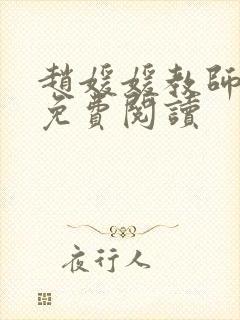 趙媛媛教師
免費閱讀
夜行人